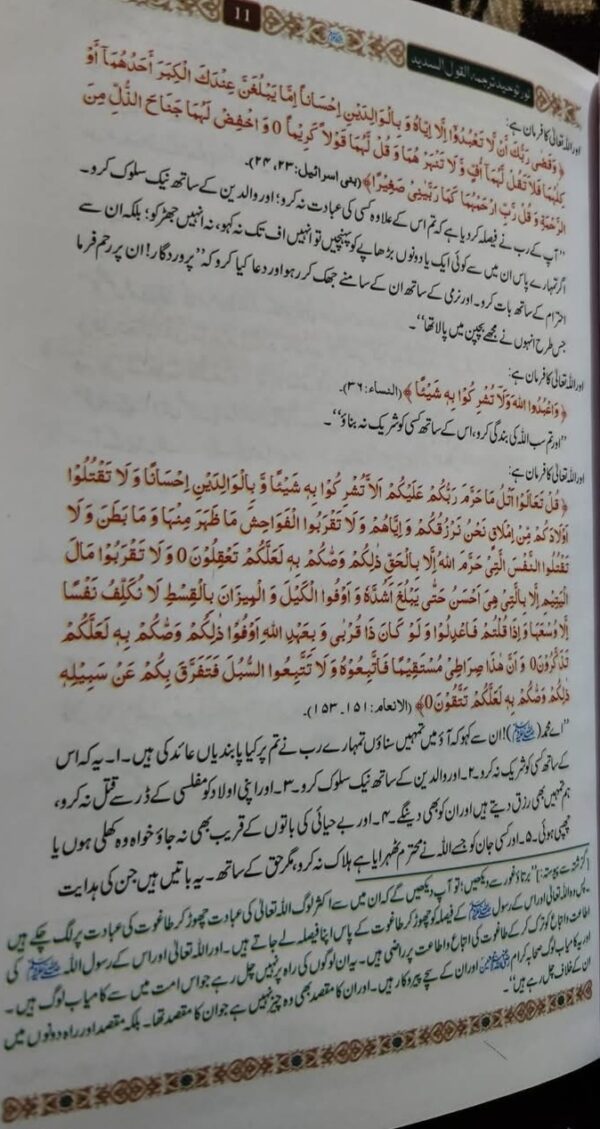 11
نور توحید ترجمہ القول السدید
اور اللہ تعالیٰ کا فرمان ہے:
﴿وَقَضٰى رَبُّكَ أَنْ لَّا تَعْبُدُوْا إِلَّا إِيَّاهُ وَ بِالْوَالِدَيْنِ إِحْسَاناً إِمَّا يَبْلُغَنَّ عِنْدَكَ الْكِبَرَ أَحَدُهُمَآ أَوْ
كِلٰهُمَا فَلَا تَقُلْ لَّهُمَا أُفٍّ وَّ لَا تَنْهَرْ هُمَا وَ قُلْ لَّهُمَا قَوْلاً كَرِيْمًا 0 وَ اخْفِضْ لَهُمَا جَنَاحَ الذُّلِّ مِنَ
الرَّحْمَةِ وَ قُلْ رَّبِّ ارْحَمْهُمَا كَمَا رَبَّيٰنِىْ صَغِيْرًا﴾ (بنی اسرائیل: ۲۳، ۲۴).
’’آپ کے رب نے فیصلہ کر دیا ہے کہ تم اس کے علاوہ کسی کی عبادت نہ کرو؛ اور والدین کے ساتھ نیک سلوک کرو۔
اگر تمہارے پاس ان میں سے کوئی ایک یا دونوں بڑھاپے کو پہنچیں تو انہیں اف تک نہ کہو، نہ انہیں جھڑکو؛ بلکہ ان سے
احترام کے ساتھ بات کرو۔ اور نرمی کے ساتھ ان کے سامنے جھک کر رہو اور دعا کیا کرو کہ ’’پروردگار! ان پر رحم فرما
جس طرح انہوں نے مجھے بچپن میں پالا تھا‘‘۔
اور اللہ تعالیٰ کا فرمان ہے:
﴿وَاعْبُدُوا اللهَ وَلَا تُشْرِ كُوْا بِهٖ شَيْئًا﴾ (النساء: ۳۶)۔
’’اور تم سب اللہ کی بندگی کرو، اس کے ساتھ کسی کو شریک نہ بناؤ‘‘۔
اور اللہ تعالیٰ کا فرمان ہے:
﴿قُلْ تَعَالَوْا اَتْلُ مَا حَرَّمَ رَبُّكُمْ عَلَيْكُمْ اَلاَّ تُشْرِ كُوْا بِهٖ شَيْئًا وَّ بِالْوَالِدَيْنِ اِحْسَانًا وَ لَا تَقْتُلُوْا
اَوْلَادَ كُمْ مِّنْ اِمْلَاقٍ نَحْنُ نَرْزُقُكُمْ وَ اِيَّاهُمْ وَ لَا تَقْرَبُوا الْفَوَاحِشَ مَا ظَهَرَ مِنْهَا وَ مَا بَطَنَ وَ لَا
تَقْتُلُوا النَّفْسَ الَّتِيْ حَرَّمَ اللهُ اِلَّا بِالْحَقِّ ذٰلِكُمْ وَصّٰكُمْ بِهٖ لَعَلَّكُمْ تَعْقِلُوْنَ 0 وَ لَا تَقْرَبُوْا مَالَ
الْيَتِيْمِ اِلَّا بِالَّتِيْ هِيَ اَحْسَنُ حَتّٰى يَبْلُغَ اَشُدَّهٗ وَ اَوْفُوا الْكَيْلَ وَ الْمِيْزَانَ بِالْقِسْطِ لَا نُكَلِّفُ نَفْسًا
اِلَّا وُسْعَهَا وَ اِذَا قُلْتُمْ فَاعْدِلُوْا وَ لَوْ كَانَ ذَا قُرْبٰى وَ بِعَهْدِ اللهِ اَوْفُوْا ذٰلِكُمْ وَصّٰكُمْ بِهٖ لَعَلَّكُمْ
تَذَكَّرُوْنَ 0 وَ اَنَّ هٰذَا صِرَاطِيْ مُسْتَقِيْمًا فَاتَّبِعُوْهُ وَ لَا تَتَّبِعُوا السُّبُلَ فَتَفَرَّقَ بِكُمْ عَنْ سَبِيْلِهٖ
ذٰلِكُمْ وَصّٰكُمْ بِهٖ لَعَلَّكُمْ تَتَّقُوْنَ 0﴾ (الانعام: ۱۵۱۔۱۵۳)۔
’’اے محمد (ﷺ)! ان سے کہو کہ آؤ میں تمہیں سناؤں تمہارے رب نے تم پر کیا پابندیاں عائد کی ہیں۔ ۱۔ یہ کہ اس
کے ساتھ کسی کو شریک نہ کرو۔ ۲۔ اور والدین کے ساتھ نیک سلوک کرو۔ ۳۔ اور اپنی اولاد کو مفلسی کے ڈر سے قتل نہ کرو،
ہم تمہیں بھی رزق دیتے ہیں اور ان کو بھی دینگے۔ ۴۔ اور بے حیائی کی باتوں کے قریب بھی نہ جاؤ خواہ وہ کھلی ہوں یا
چھپی ہوئی۔ ۵۔ اور کسی جان کو جسے اللہ نے محترم ٹھہرایا ہے ہلاک نہ کرو، مگر حق کے ساتھ۔ یہ باتیں ہیں جن کی ہدایت
[گزشتہ سے پیوستہ:] ’’برتاؤ غور سے دیکھیں؛ تو آپ دیکھیں گے کہ ان میں سے اکثر لوگ اللہ تعالیٰ کی عبادت چھوڑ کر طاغوت کی عبادت پر لگ چکے ہیں
۔ پس وہ اللہ تعالیٰ اور اس کے رسول ﷺ کے فیصلہ کو چھوڑ کر طاغوت کے پاس اپنا فیصلہ لے جاتے ہیں۔ اور اللہ تعالیٰ اور اس کے رسول اللہ ﷺ کی
اطاعت و اتباع کو ترک کر کے طاغوت کی اتباع و اطاعت پر راضی ہیں۔ یہ ان لوگوں کی راہ پر نہیں چل رہے جو اس امت میں سے کامیاب لوگ ہیں۔
اور یہ کامیاب لوگ صحابہ کرام رضی اللہ عنہم اور ان کے سچے پیروکار ہیں۔ اور ان کا مقصد بھی وہ چیز نہیں ہے جو ان کا مقصد تھا۔ بلکہ مقصد اور راہ دونوں میں
ان کے خلاف چل رہے ہیں‘‘۔